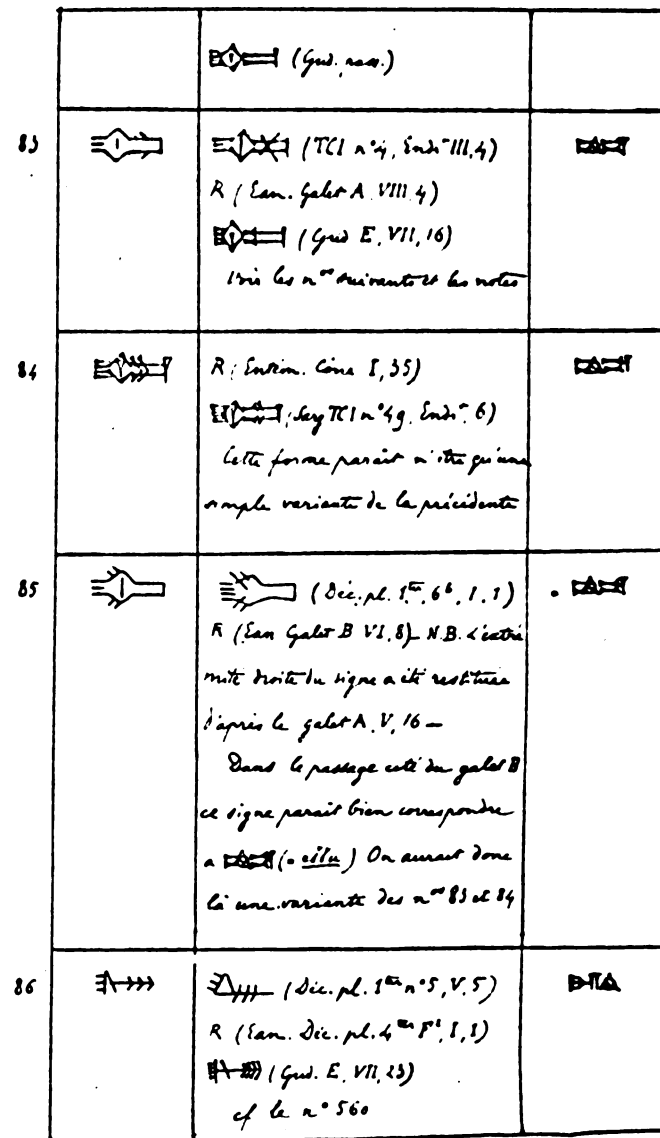 (Gud. pass.)
83 (TCI n° 4, Endt III, 4)
R (Ean. Galet A. VIII. 4)
(Gud E, VII, 16)
Voir les nos suivants et les notes
84 R (Entém. Cône I, 35)
TCI n° 49. Endt 6)
Cette forme paraît n'être qu'une
simple variante de la précédente
85 (Déc. pl. 1ter, 6b, I, 1)
R (Ean Galet B VI, 8) – N.B. L'extré
mité droite du signe a été restituée
d'après le galet A, V, 16 –
Dans le passage cité du galet B
ce signe paraît bien correspondre
a (= ) On aurait donc
là une variante des nos 83 et 84
86 (Déc. pl. 1ter n° 5, V. 5)
R (Ean. Déc. pl. 4ter F1, I, 1)
(Gud. E, VII, 23)
cf le n° 560